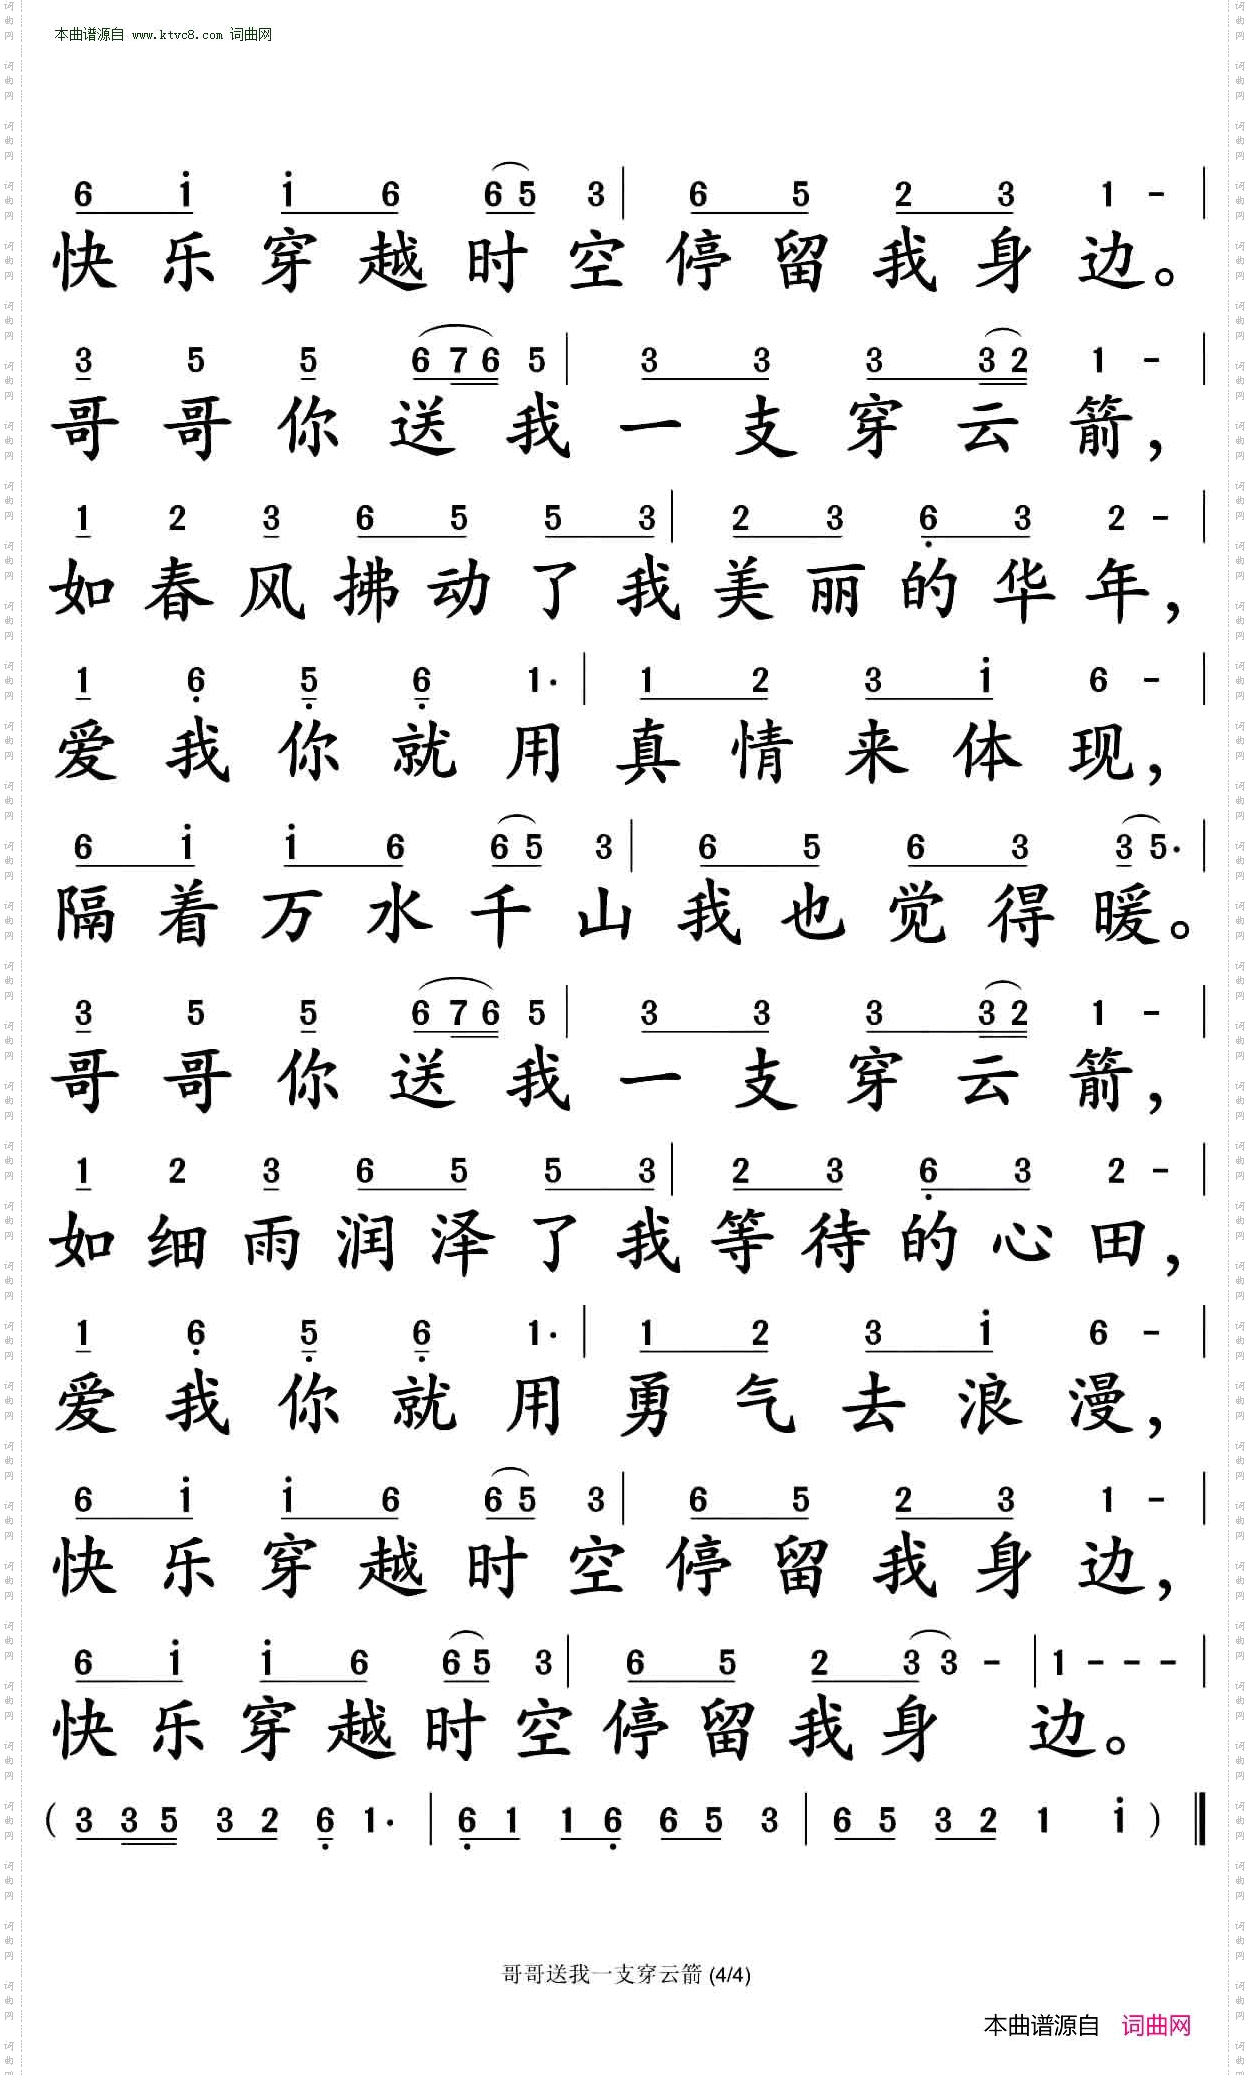 本曲谱源自 www.ktvc8.com 词曲网
6 i i 6 6 5 3 | 6 5 2 3 1 - |
快乐穿越时空停留我身边。
3 5 5 6 7 6 5 | 3 3 3 3 2 1 - |
哥哥你送我一支穿云箭，
1 2 3 6 5 5 3 | 2 3 6 3 2 - |
如春风拂动了我美丽的华年，
1 6 5 6 1· | 1 2 3 i 6 - |
爱我你就用真情来体现，
6 i i 6 6 5 3 | 6 5 6 3 3 5· |
隔着万水千山我也觉得暖。
3 5 5 6 7 6 5 | 3 3 3 3 2 1 - |
哥哥你送我一支穿云箭，
1 2 3 6 5 5 3 | 2 3 6 3 2 - |
如细雨润泽了我等待的心田，
1 6 5 6 1· | 1 2 3 i 6 - |
爱我你就用勇气去浪漫，
6 i i 6 6 5 3 | 6 5 2 3 1 - |
快乐穿越时空停留我身边，
6 i i 6 6 5 3 | 6 5 2 3 3 - | 1 - - - |
快乐穿越时空停留我身边。
( 3 3 5 3 2 6 1· | 6 1 1 6 6 5 3 | 6 5 3 2 1 i ) ‖
哥哥送我一支穿云箭 (4/4)
本曲谱源自 词曲网